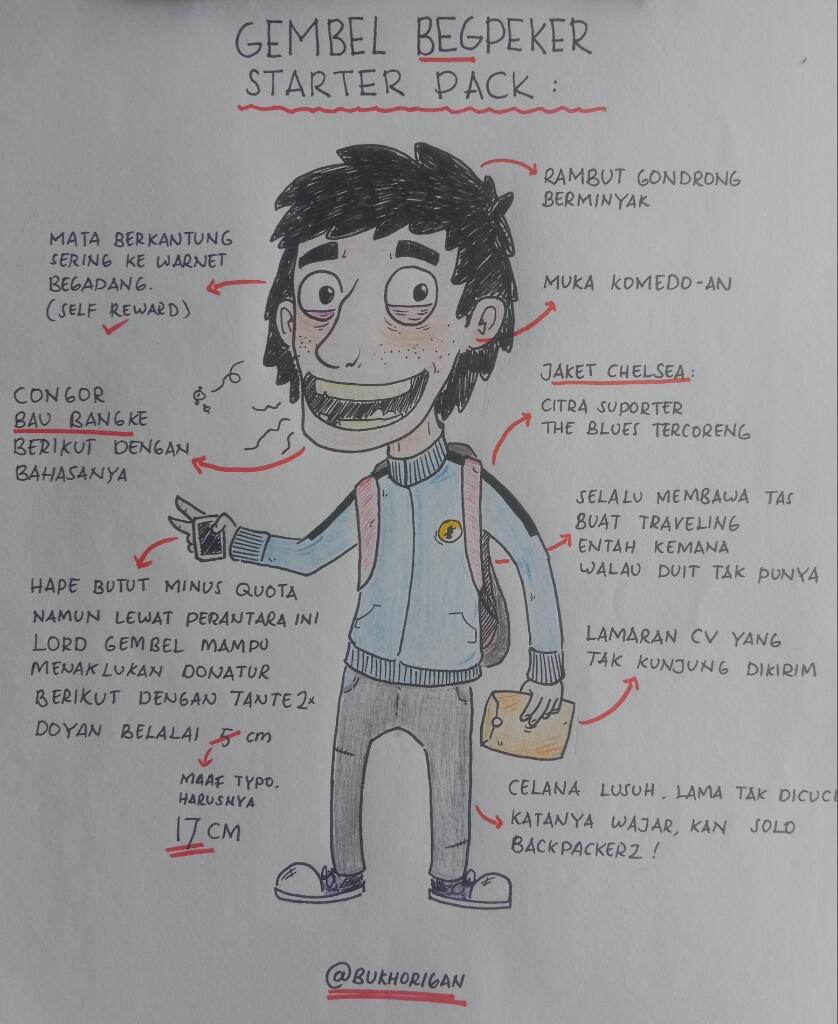 GEMBEL BEGPEKER
STARTER PACK :
RAMBUT GONDRONG
BERMINYAK
MATA BERKANTUNG
SERING KE WARNET
BEGADANG.
(SELF REWARD)
MUKA KOMEDO-AN
JAKET CHELSEA:
CITRA SUPORTER
THE BLUES TERCORENG
CONGOR
BAU BANGKE
BERIKUT DENGAN
BAHASANYA
SELALU MEMBAWA TAS
BUAT TRAVELING
ENTAH KEMANA
WALAU DUIT TAK PUNYA
HAPE BUTUT MINUS QUOTA
NAMUN LEWAT PERANTARA INI
LORD GEMBEL MAMPU
MENAKLUKAN DONATUR
BERIKUT DENGAN TANTE2x
DOYAN BELALAI 5 cm
MAAF TYPO.
HARUSNYA
17 CM
LAMARAN CV YANG
TAK KUNJUNG DIKIRIM
CELANA LUSUH. LAMA TAK DICUCI
KATANYA WAJAR, KAN SOLO
BACKPACKERZ !
@BUKHORIGAN